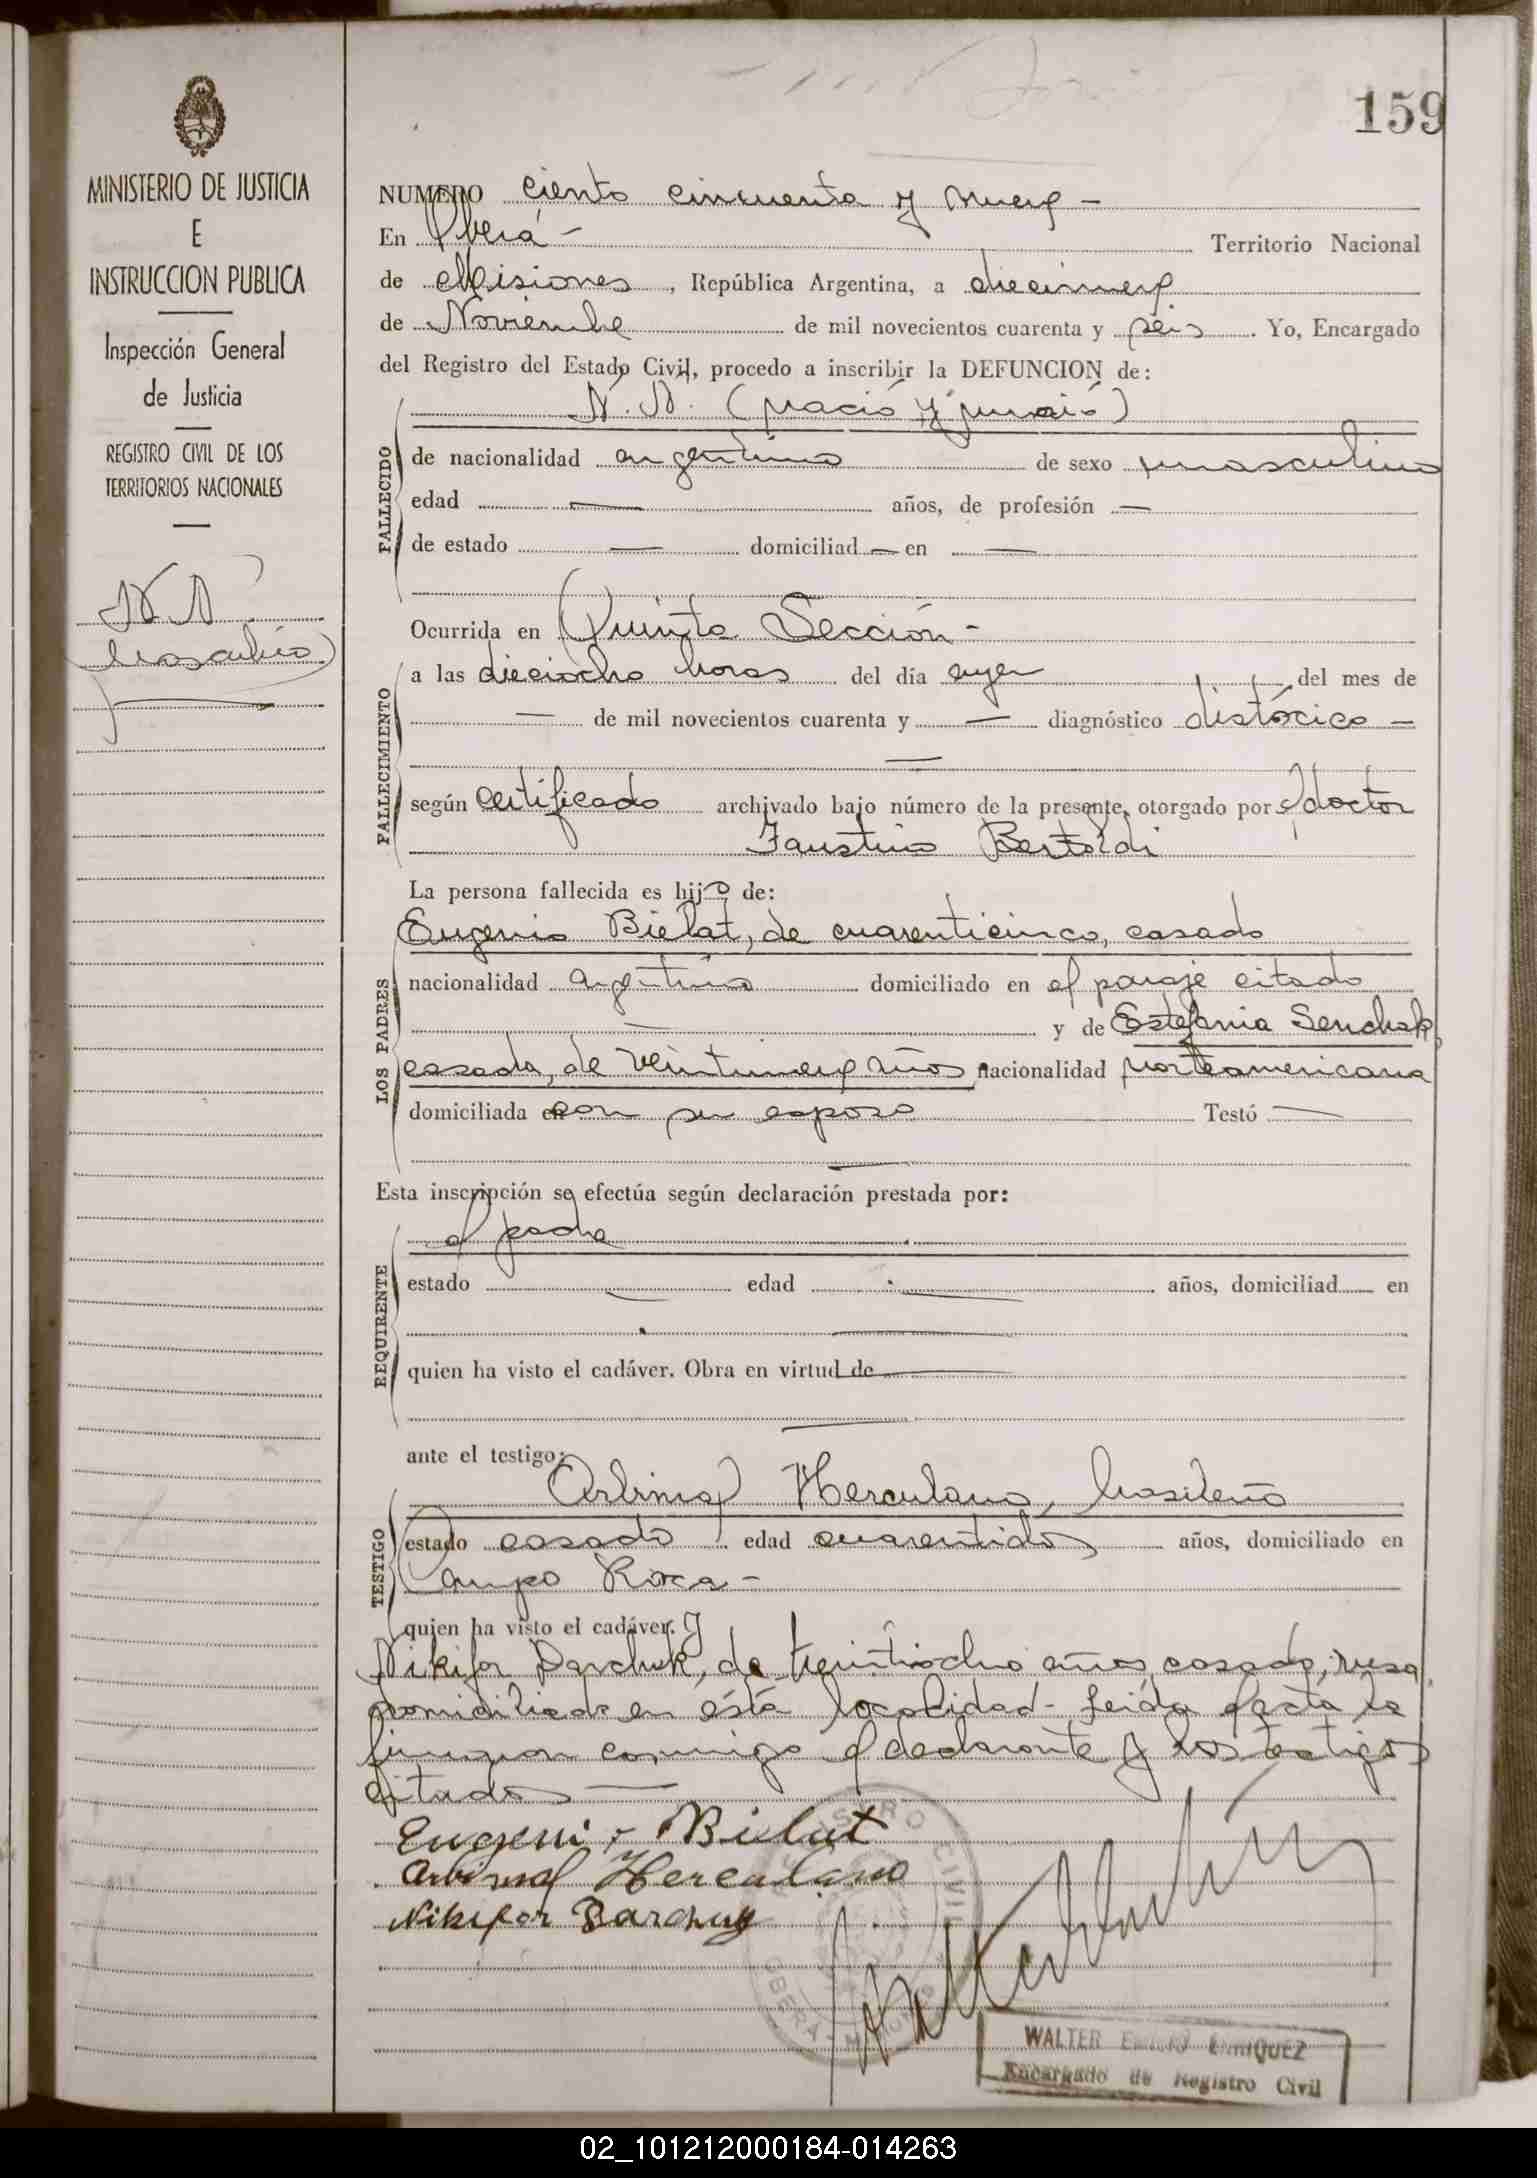 159
MINISTERIO DE JUSTICIA
E
INSTRUCCION PUBLICA
Inspección General
de Justicia
REGISTRO CIVIL DE LOS
TERRITORIOS NACIONALES
N. N
NUMERO ciento cincuenta y nueve -
En Oberá - Territorio Nacional
de Misiones, República Argentina, a diecinueve
de Noviembre de mil novecientos cuarenta y seis. Yo, Encargado
del Registro del Estado Civil, procedo a inscribir la DEFUNCION de:
N. N. (nació y murió)
FALLECIDO
de nacionalidad argentino de sexo masculino
edad — años, de profesión —
de estado — domiciliad — en —
Ocurrida en Quinta Sección -
FALLECIMIENTO
a las dieciocho horas del día ayer del mes de
— de mil novecientos cuarenta y — diagnóstico distócico —
según certificado archivado bajo número de la presente, otorgado por el doctor
Faustino Bertoldi
La persona fallecida es hijo de:
LOS PADRES
Eugenio Bielat, de cuarenticinco, casado
nacionalidad argentino domiciliado en el paraje citado
— y de Estefania Senchak,
casada, de veintinueve años nacionalidad norteamericana
domiciliada en con su esposo Testó —
Esta inscripción se efectúa según declaración prestada por:
REQUIRENTE
el padre
estado — edad — años, domiciliad en
quien ha visto el cadáver. Obra en virtud de —
ante el testigo:
TESTIGO
Arbinal Herculano, brasileño
estado casado edad cuarentidos años, domiciliado en
Campo Roca -
quien ha visto el cadáver. Y
Nikifor Barchuk, de treintiocho años, casado, ruso,
domiciliado en ésta localidad - Leída el acta la
firmaron conmigo el declarante y los testigos
citados —
Eugenio Bielat
Arbinal Herculano
Nikifor Barchuk
REGISTRO CIVIL
OBERÁ - MISIONES
WALTER EMILIO ENRIQUEZ
Encargado de Registro Civil
02_101212000184-014263